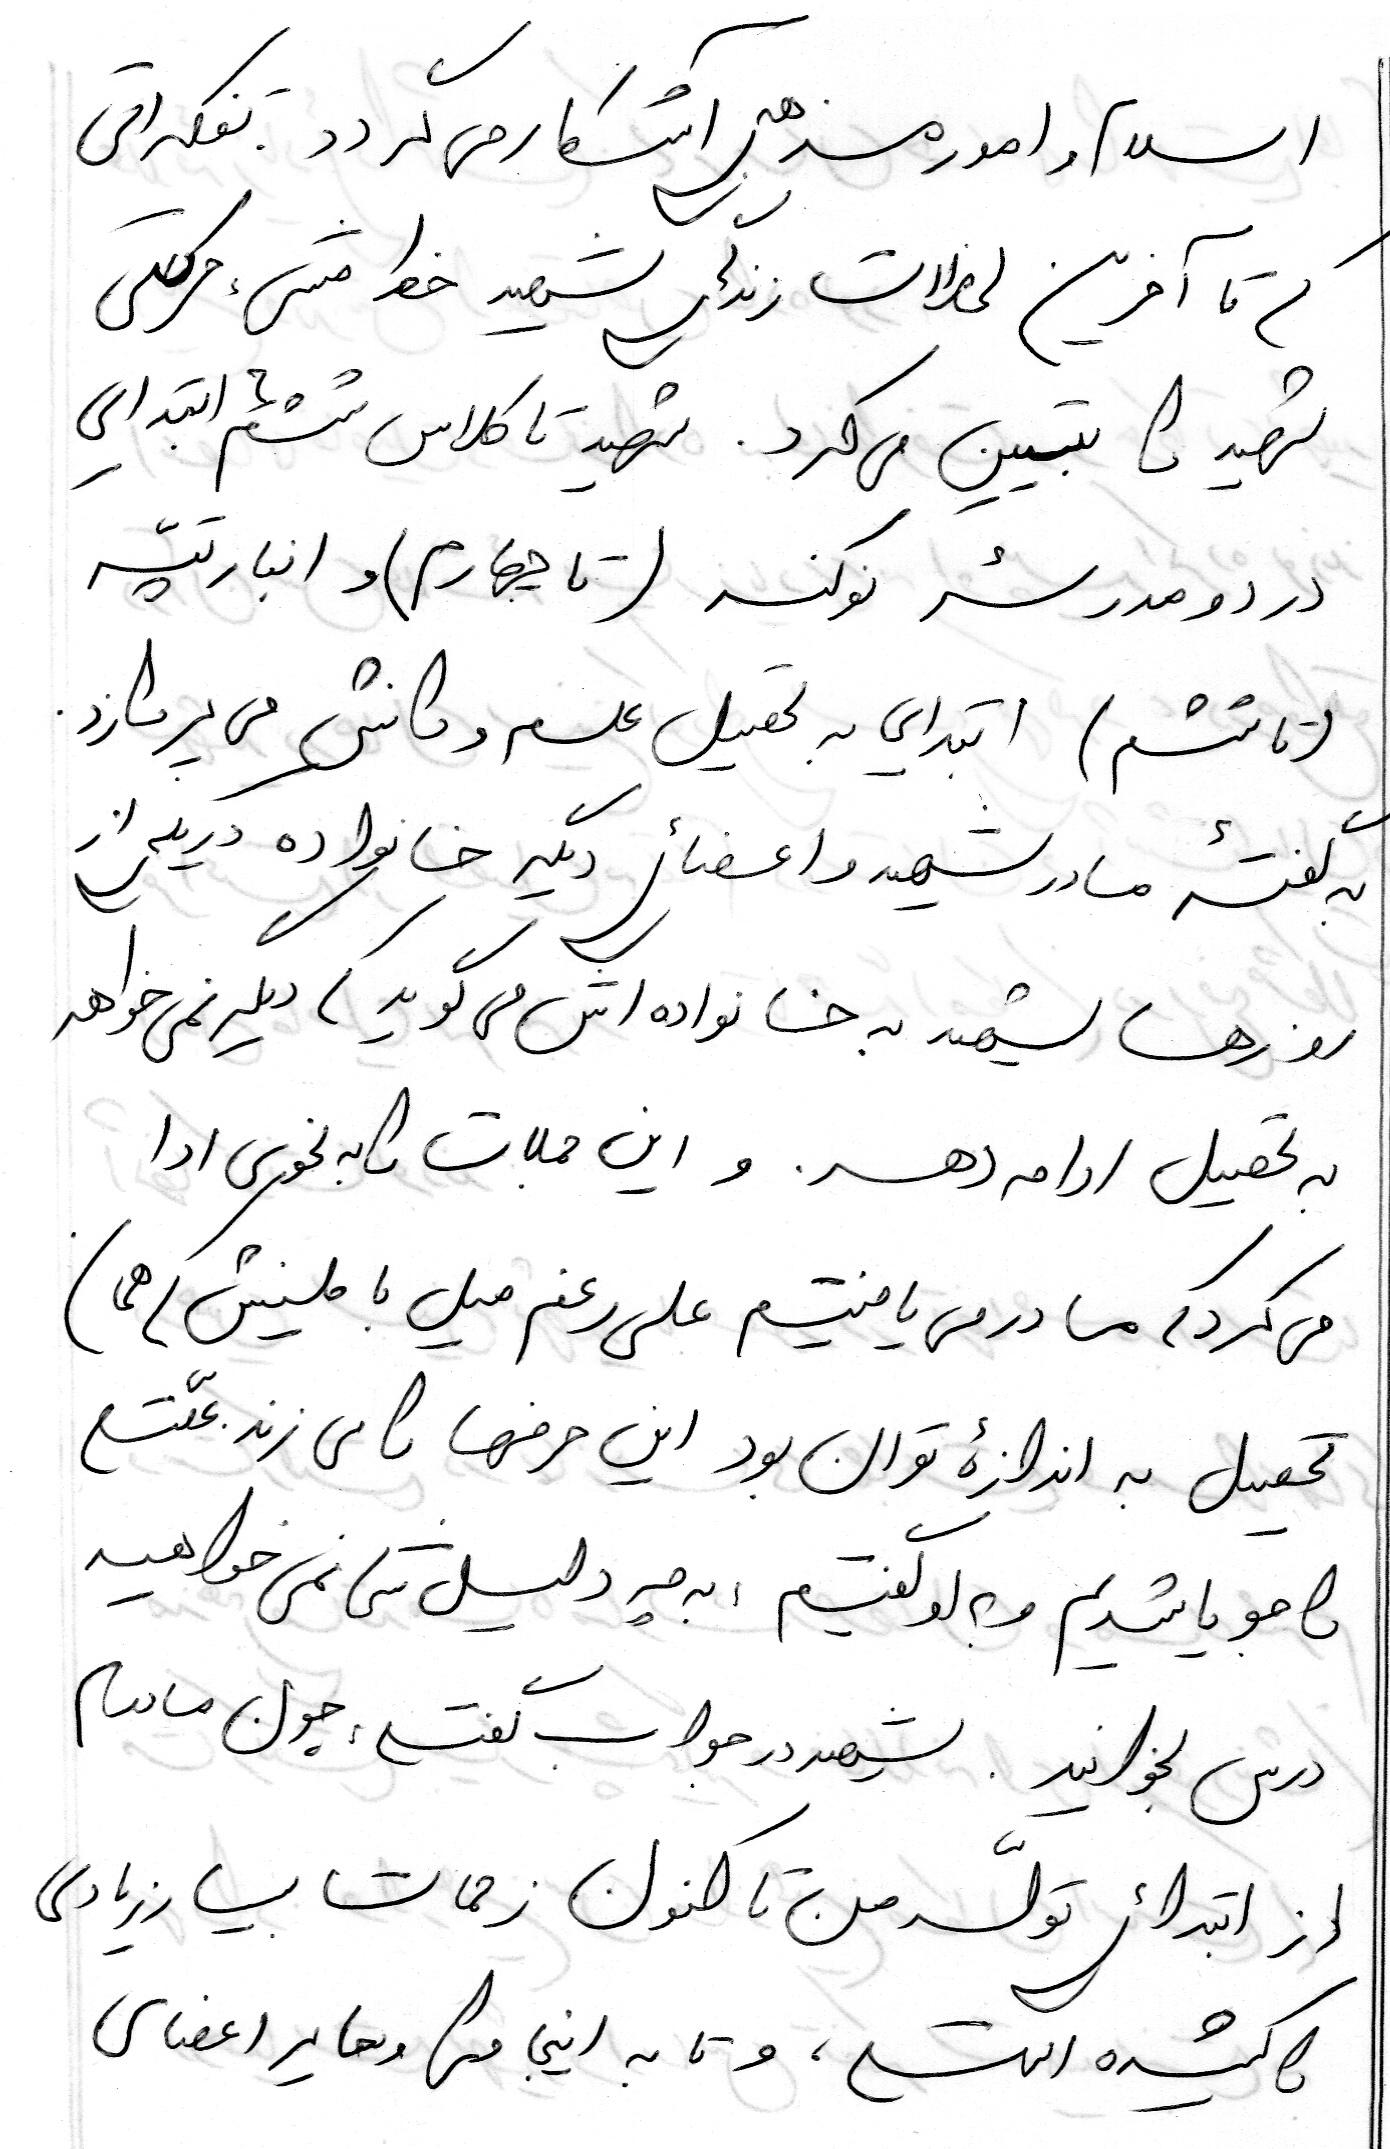 اسلام و اموره مذهبی آشکار می گردد. تفکراتی
که تا آخرین لحظات زندگی شهید خط مشی، حرکتی
شهید را تبیین می کرد. شهید تا کلاس ششم ابتدایی
در دو مدرسهٔ نوکنده (تا چهارم) و انبار تپه
(تا ششم) ابتدایی به تحصیل علم و دانش می پردازد.
به گفتهٔ مادر شهید و اعضای دیگر خانواده در یکی از
روزها شهید به خانواده اش می گوید که دیگر نمی خواهد
به تحصیل ادامه دهد. و این جملات را به نحوی ادا
می کرد که ما در می یافتیم علی رغم میل باطنیش که همانا
تحصیل به اندازهٔ توان بود این حرفها را می زند. علّت
را جویا شدیم و به او گفتیم، به چه دلیل شما نمی خواهید
درس بخوانید. شهید در جواب گفت، چون مادرم
از ابتدای تولّد من تا کنون زحمات بسیار زیادی
را کشیده است، و تا به اینجا مرا و سایر اعضای